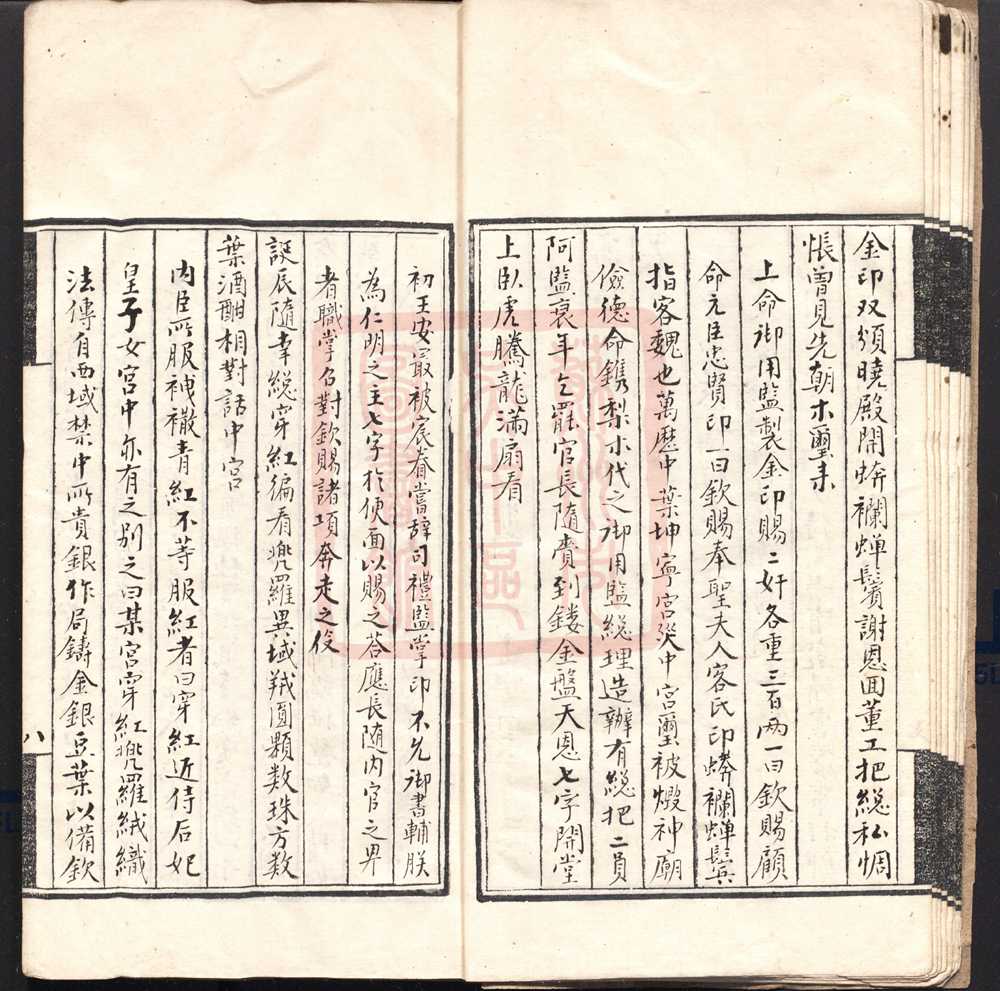 金印双頒曉殿開蟒襴蟬鬢謝恩囬董工把緫私惆
悵曾見先朝木璽来
上命御用監製金印賜二奸各重三百两一曰欽賜顧
命元臣忠賢印一曰欽賜奉聖夫人客氏印蟒襴蟬鬢
指客魏也萬歷中葉坤寧宮災中宮璽被燬神廟
儉德命鐫梨木代之御用監緫理造辦有緫把二員
阿監衰年乞罷官長隨賷到鏤金盤天恩七字開堂
上臥虎騰龍滿扇看
初王安㝡被宸眷嘗辞司禮監掌印不允御書輔朕
為仁明之主七字於便面以賜之荅應長随内官之卑
者職掌召對欽賜諸項奔走之役
誕辰隨幸緫穿紅徧看兠羅異域羢圓顆数珠方数
葉酒酣相對話中宮
内臣所服裓襒青紅不等服紅者曰穿紅近侍后妃
皇子女宮中亦有之别之曰某宮穿紅兠羅絨織
法傳自西域禁中所貴銀作局鑄金銀豆葉以備欽
八